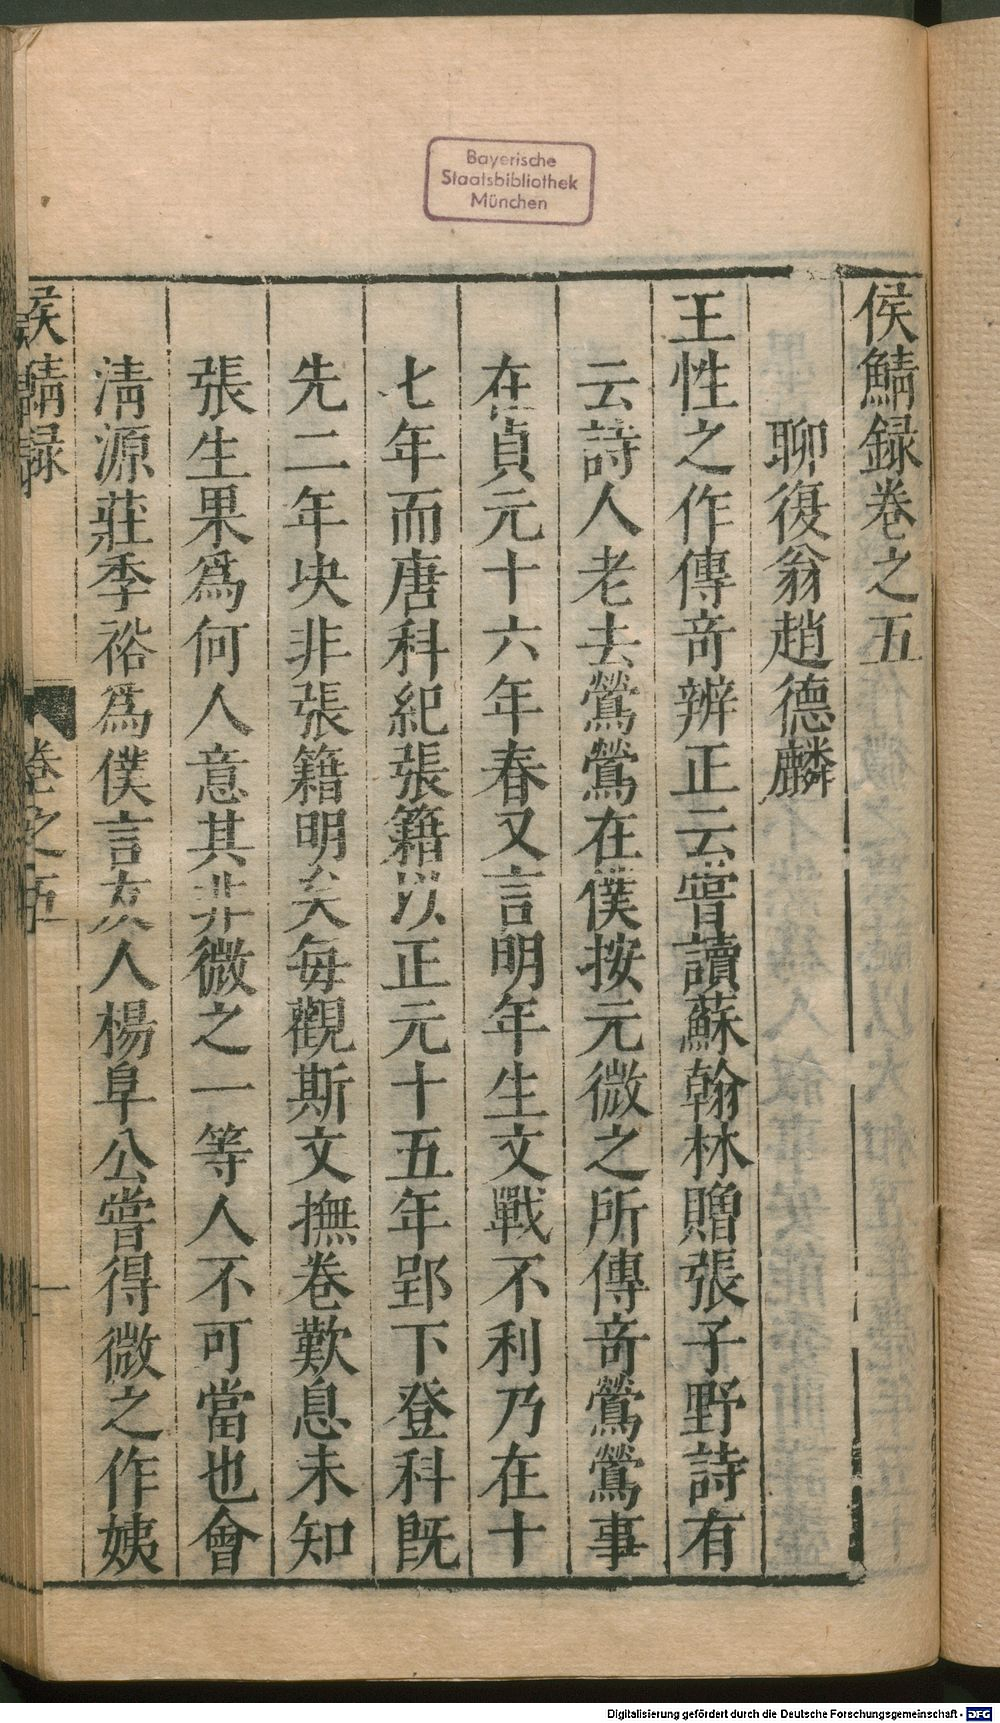 Bayerische
Staatsbibliothek
München
侯鯖録卷之五
聊復翁趙德麟
王性之作傳竒辨正云嘗讀蘇翰林贈張子野詩有
云詩人老去鶯鶯在僕按元微之所傳竒鶯鶯事
在貞元十六年春又言明年生文戰不利乃在十
七年而唐科紀張籍以正元十五年郢下登科旣
先二年决非張籍明矣每觀斯文撫卷歎息未知
張生果爲何人意其非微之一等人不可當也會
淸源莊季裕爲僕言友人楊阜公嘗得微之作姨
侯鯖録
卷之五
一
Digitalisierung gefördert durch die Deutsche Forschungsgemeinschaft - DFG